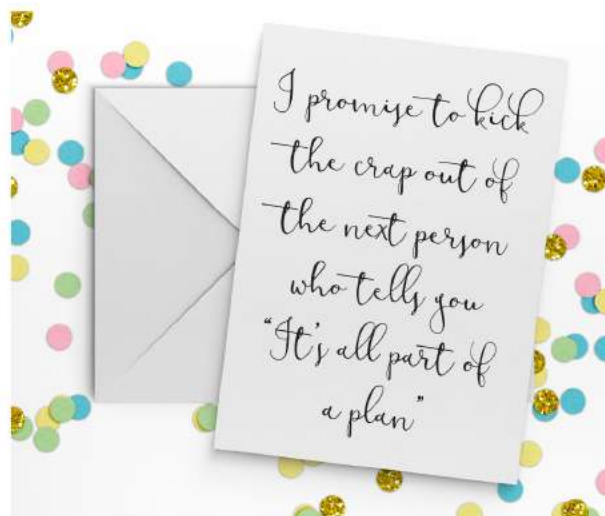 I promise to kick
the crap out of
the next person
who tells you
"It's all part of
a plan"